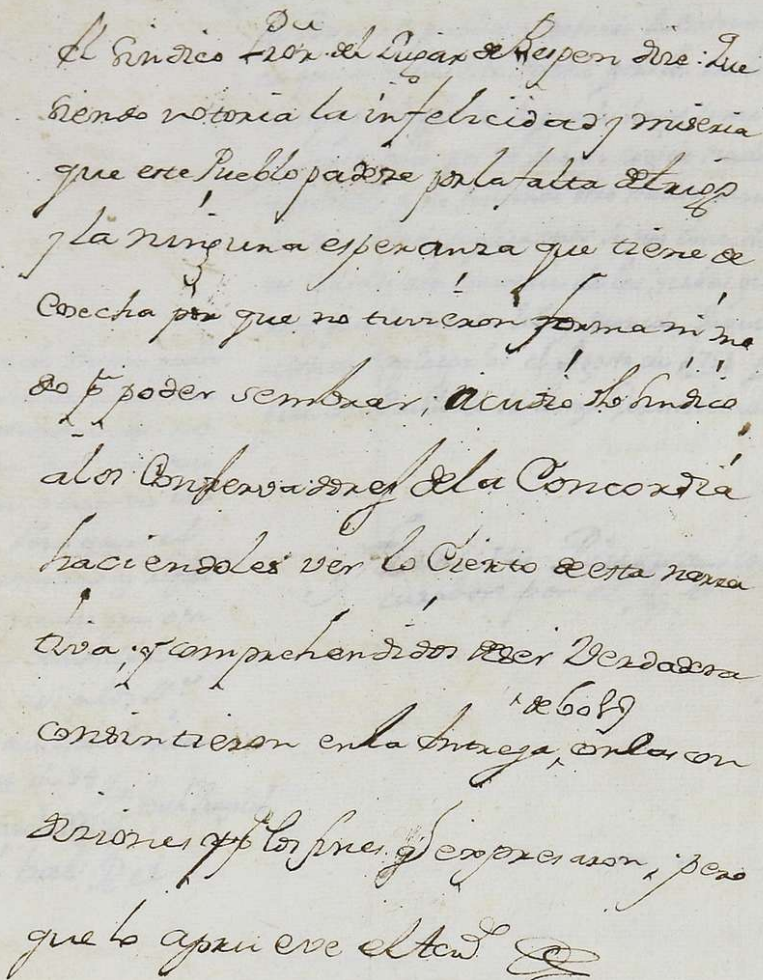 El Sindico Pror del Lugar de Respen dice: Que
siendo notoria la infelicidad y miseria
que este Pueblo padeze por la falta de trigo
y la ninguna esperanza que tiene de
Cosecha por que no tuvieron forma ni mo
do pa poder sembrar; acudió dho Sindico
a los Conservadores de la Concordia
haciendoles ver lo Cierto de esta narra
tiva; y comprehendidos de ser Verdadera
consintieron en la Entrega, con las con
diziones y pa los fines qe expresaron; pero
que lo aprueve el Acdo